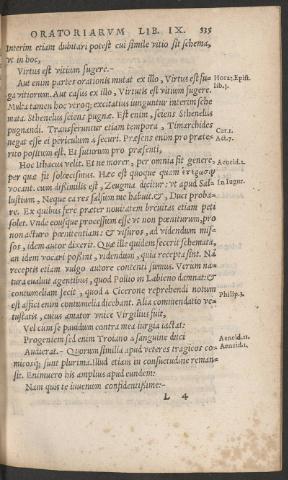 ORATORIARVM LIB. IX. 535
Interim etiam dubitari potest cui simile vitio sit schema,
vt in hoc,
Virtus est vitium fugere.-
Aut enim parter orationis mutat ex illo, Virtus est fu-
ga vitiorum. Aut casus ex illo, Virtutis est vitium fugere.
Multa tamen hoc vtroq; excitatius iunguntur interim sche
mata. Sthenelus sciens pugnæ. Est enim, sciens Sthenelus
pugnandi. Transferuntur etiam tempora, Timarchides
negat esse ei periculum à securi. Præsens enim pro præte-
rito positum est. Et futurum pro præsenti,
Hoc Ithacus velit. Et ne morer, per omnia sit genere,
per quæ fit solœcismus. Hæc est quoque quam
vocant. cui dissimilis est, Zeugma dicitur: vt apud Sal-
lustium, Neque ea res falsum me habuit. & Duci proba-
re. Ex quibus ferè præter nouitatem breuitas etiam peti
solet. Vnde eousque processum est vt non pœnituram, pro
non actura pœnitentiam: & visuros, ad videndum mis-
sos, idem autor dixerit. Quæ ille quidem fecerit schemata,
an idem vocari possint, videndum, quia recepta sint. Nã
receptis etiam vulgo autore contenti sumus. Verum na-
tura eualuit agentibus, quod Pollio in Labieno damnat: &
contumeliam fecit, quod à Cicerone reprehendi notum
est affici enim contumelia dicebant. Alia commendatio ve-
tustatis, cuius amator vnicè Virgilius fuit,
Vel cùm se pauidum contra mea iurgia iactat:
Progeniem sed enim Troiano a sanguine duci
Audierat.- Quorum similia apud veteres tragicos co-
micosq; sunt plurima. Illud etiam in consuetudine reman-
sit. Enimuero his amplius apud eundem:
Nam quis te iuuenum confidentissime:-
L 4
Horat. Epist.
lib. 1.
Act. 7.
Aeneid. 2.
In Iugur.
Philip. 3.
Aeneid. 11.
Aeneid. 1.